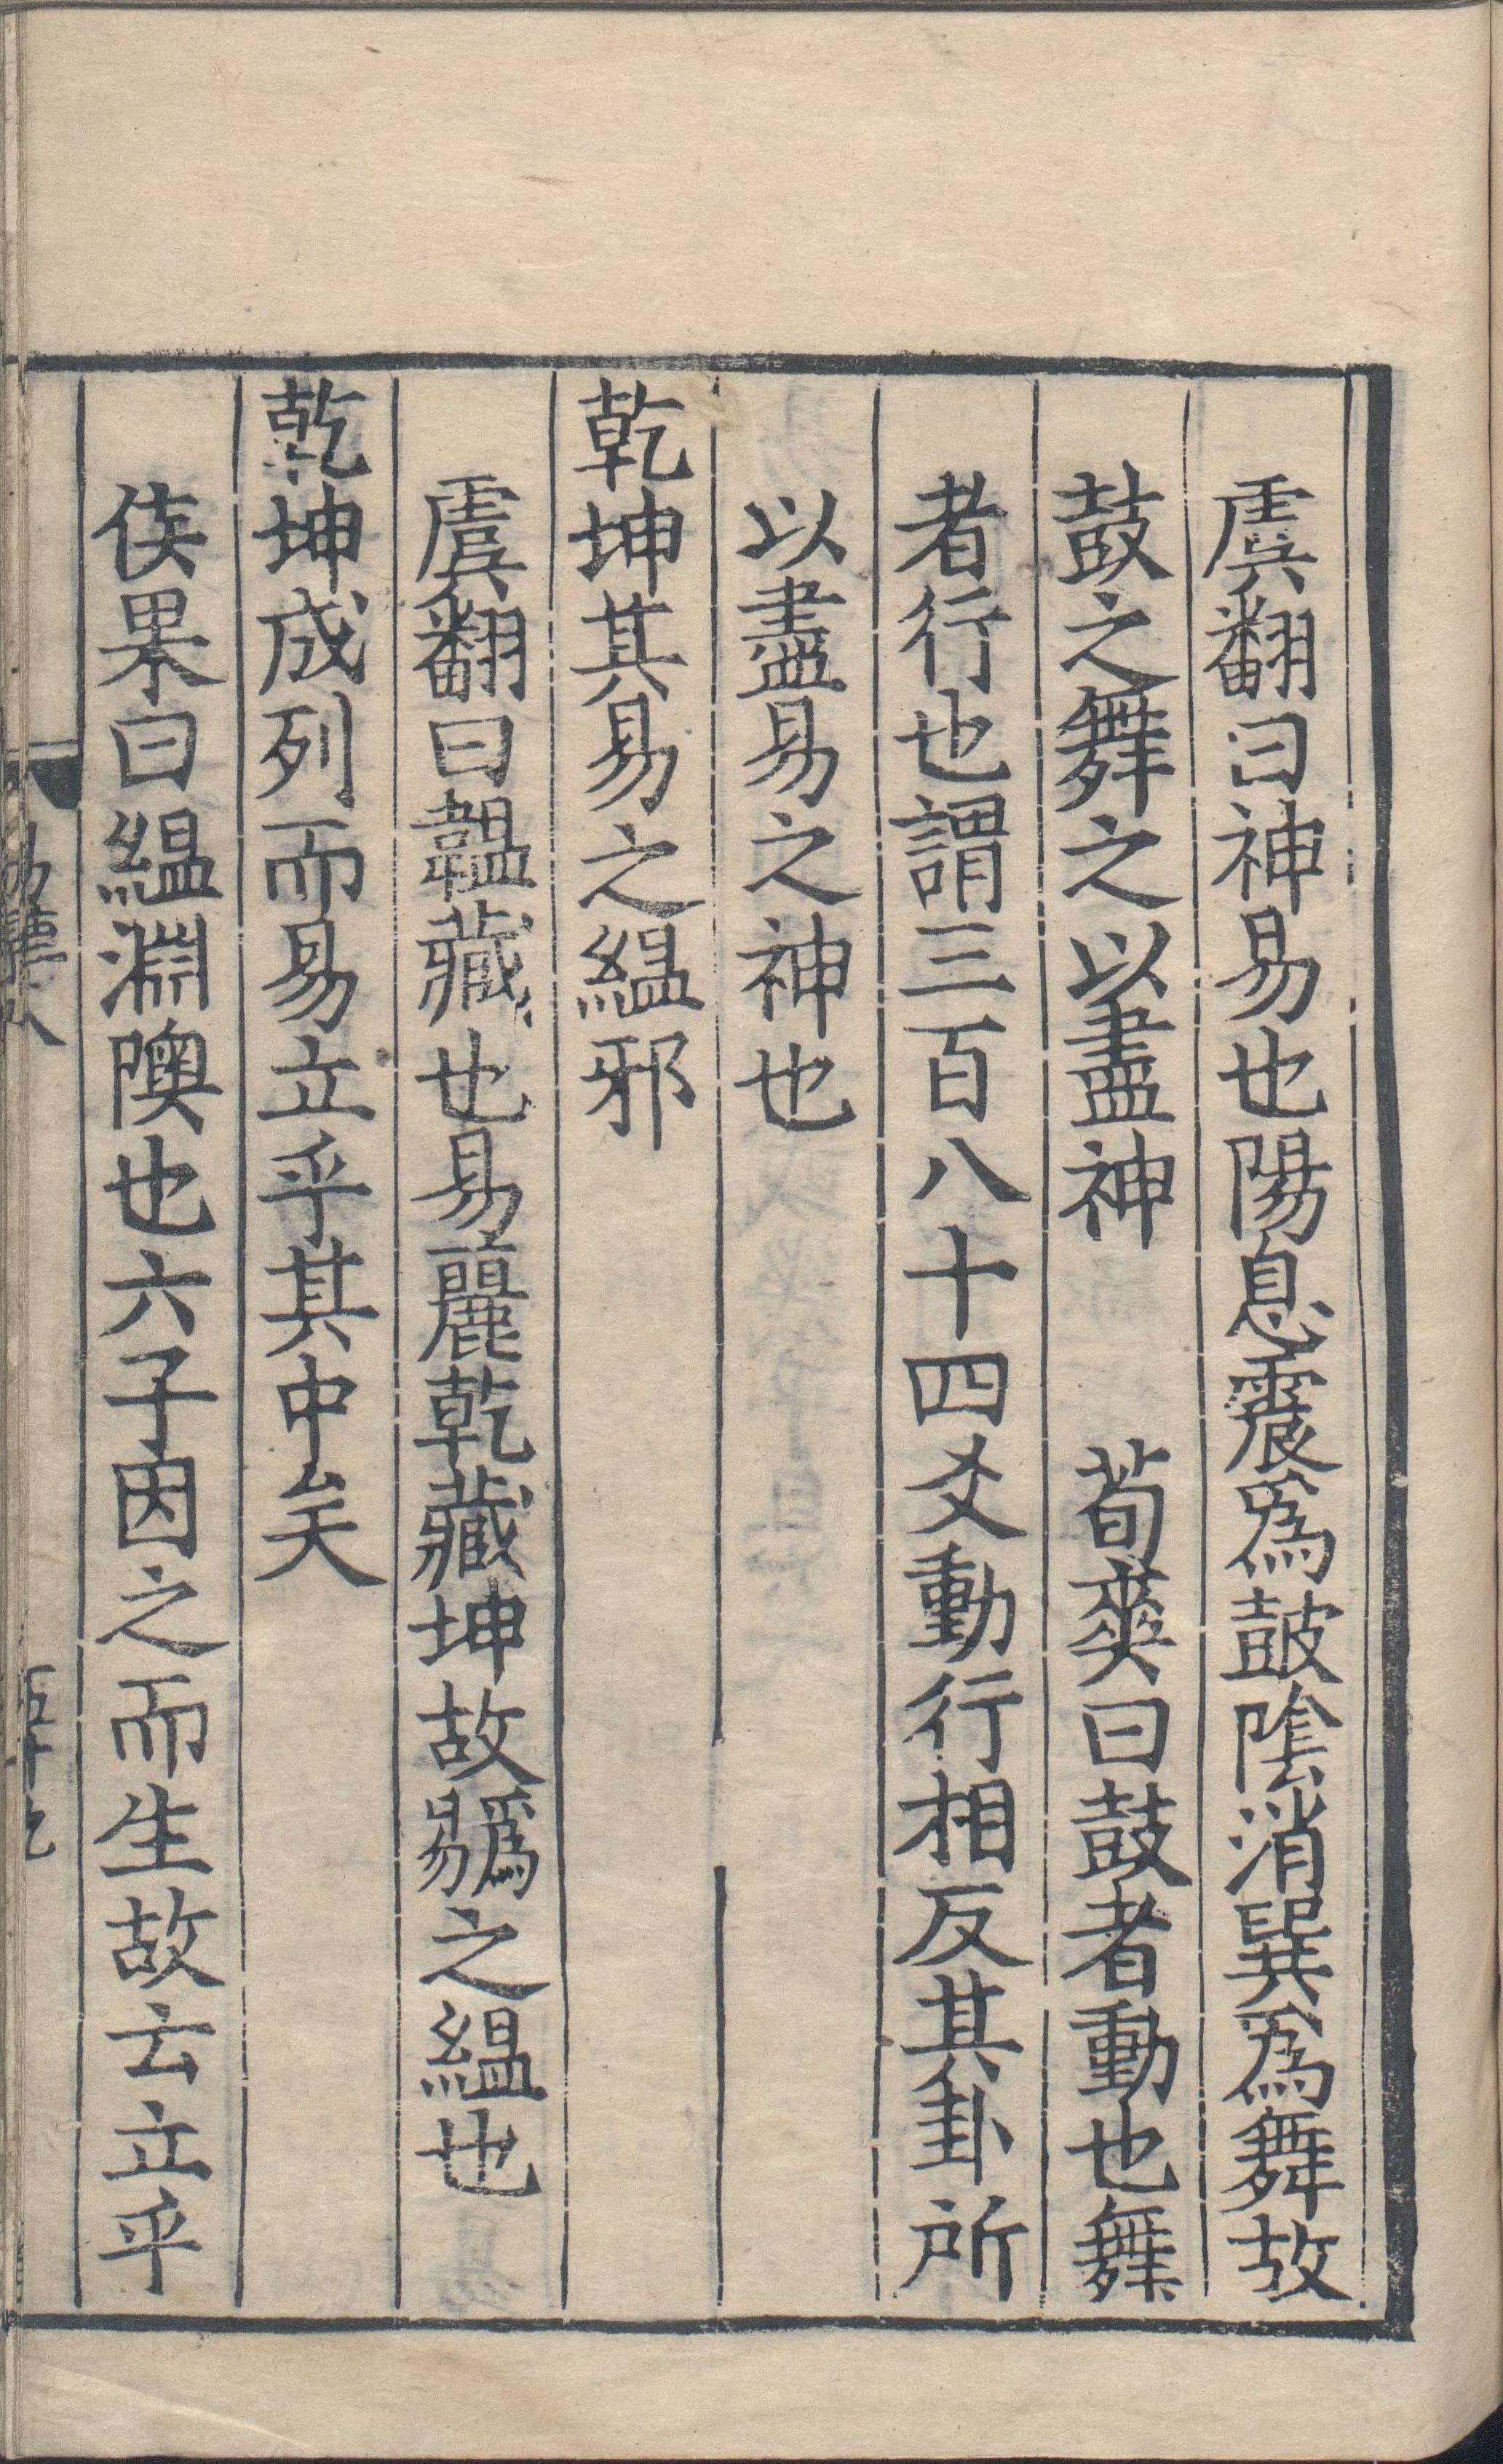 虞翻曰神易也陽息震爲鼓陰消巽爲舞故
鼓之舞之以盡神　荀爽曰鼓者動也舞
者行也謂三百八十四爻動行相反其卦所
以盡易之神也
乾坤其易之緼邪
虞翻曰韞藏也易麗乾藏坤故爲易之緼也
乾坤成列而易立乎其中矣
侯果曰緼淵隩也六子因之而生故云立乎